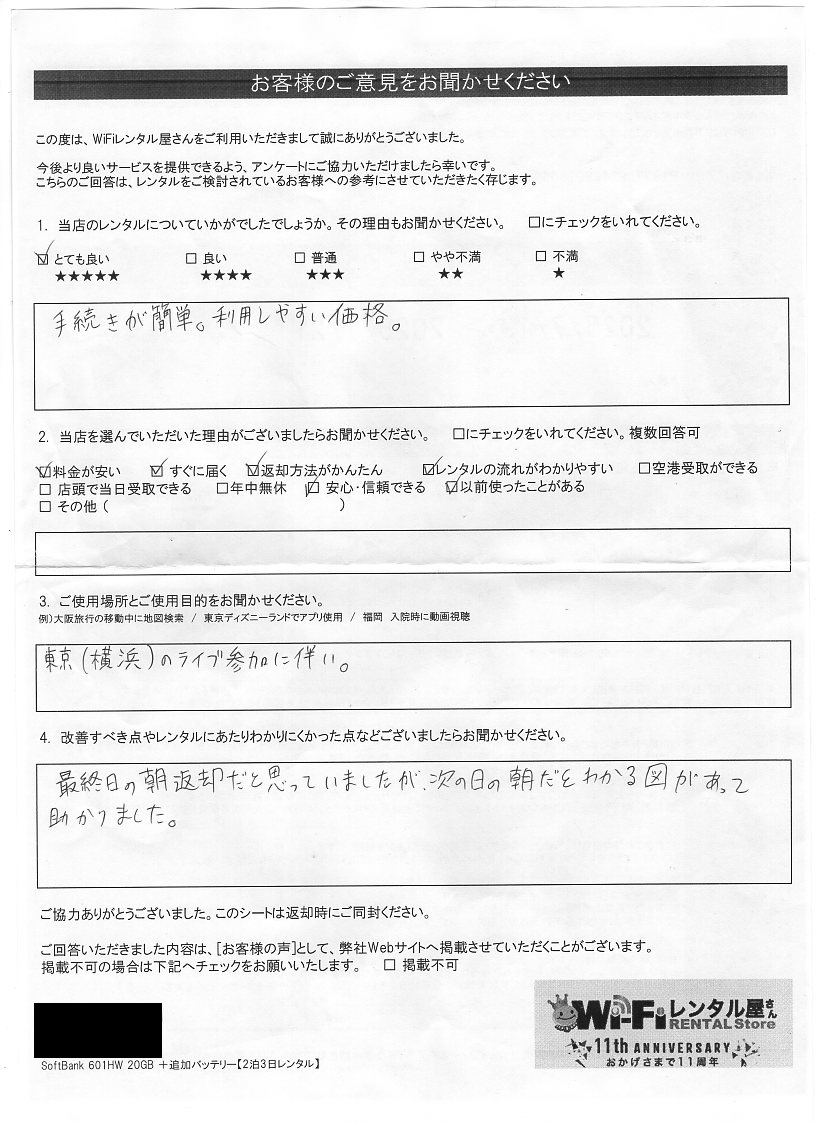 お客様のご意見をお聞かせください
この度は、WiFiレンタル屋さんをご利用いただきまして誠にありがとうございました。
今後より良いサービスを提供できるよう、アンケートにご協力いただけましたら幸いです。
こちらのご回答は、レンタルをご検討されているお客様への参考にさせていただきたく存じます。
1. 当店のレンタルについていかがでしたでしょうか。その理由もお聞かせください。 □にチェックをいれてください。
☑ とても良い □ 良い □ 普通 □ やや不満 □ 不満
★★★★★ ★★★★ ★★★ ★★ ★
手続きが簡単。利用しやすい価格。
2. 当店を選んでいただいた理由がございましたらお聞かせください。 □にチェックをいれてください。複数回答可
☑料金が安い ☑ すぐに届く ☑返却方法がかんたん ☑レンタルの流れがわかりやすい □空港受取ができる
□ 店頭で当日受取できる □年中無休 ☑ 安心・信頼できる ☑以前使ったことがある
□ その他( )
3. ご使用場所とご使用目的をお聞かせください。
例)大阪旅行の移動中に地図検索 / 東京ディズニーランドでアプリ使用 / 福岡 入院時に動画視聴
東京(横浜)のライブ参加に伴い。
4. 改善すべき点やレンタルにあたりわかりにくかった点などございましたらお聞かせください。
最終日の朝返却だと思っていましたが、次の日の朝だとわかる図があって
助かりました。
ご協力ありがとうございました。このシートは返却時にご同封ください。
ご回答いただきました内容は、[お客様の声]として、弊社Webサイトへ掲載させていただくことがございます。
掲載不可の場合は下記へチェックをお願いいたします。 □ 掲載不可
Wi-Fiレンタル屋さん
RENTAL Store
11th ANNIVERSARY
おかげさまで11周年
SoftBank 601HW 20GB +追加バッテリー【2泊3日レンタル】